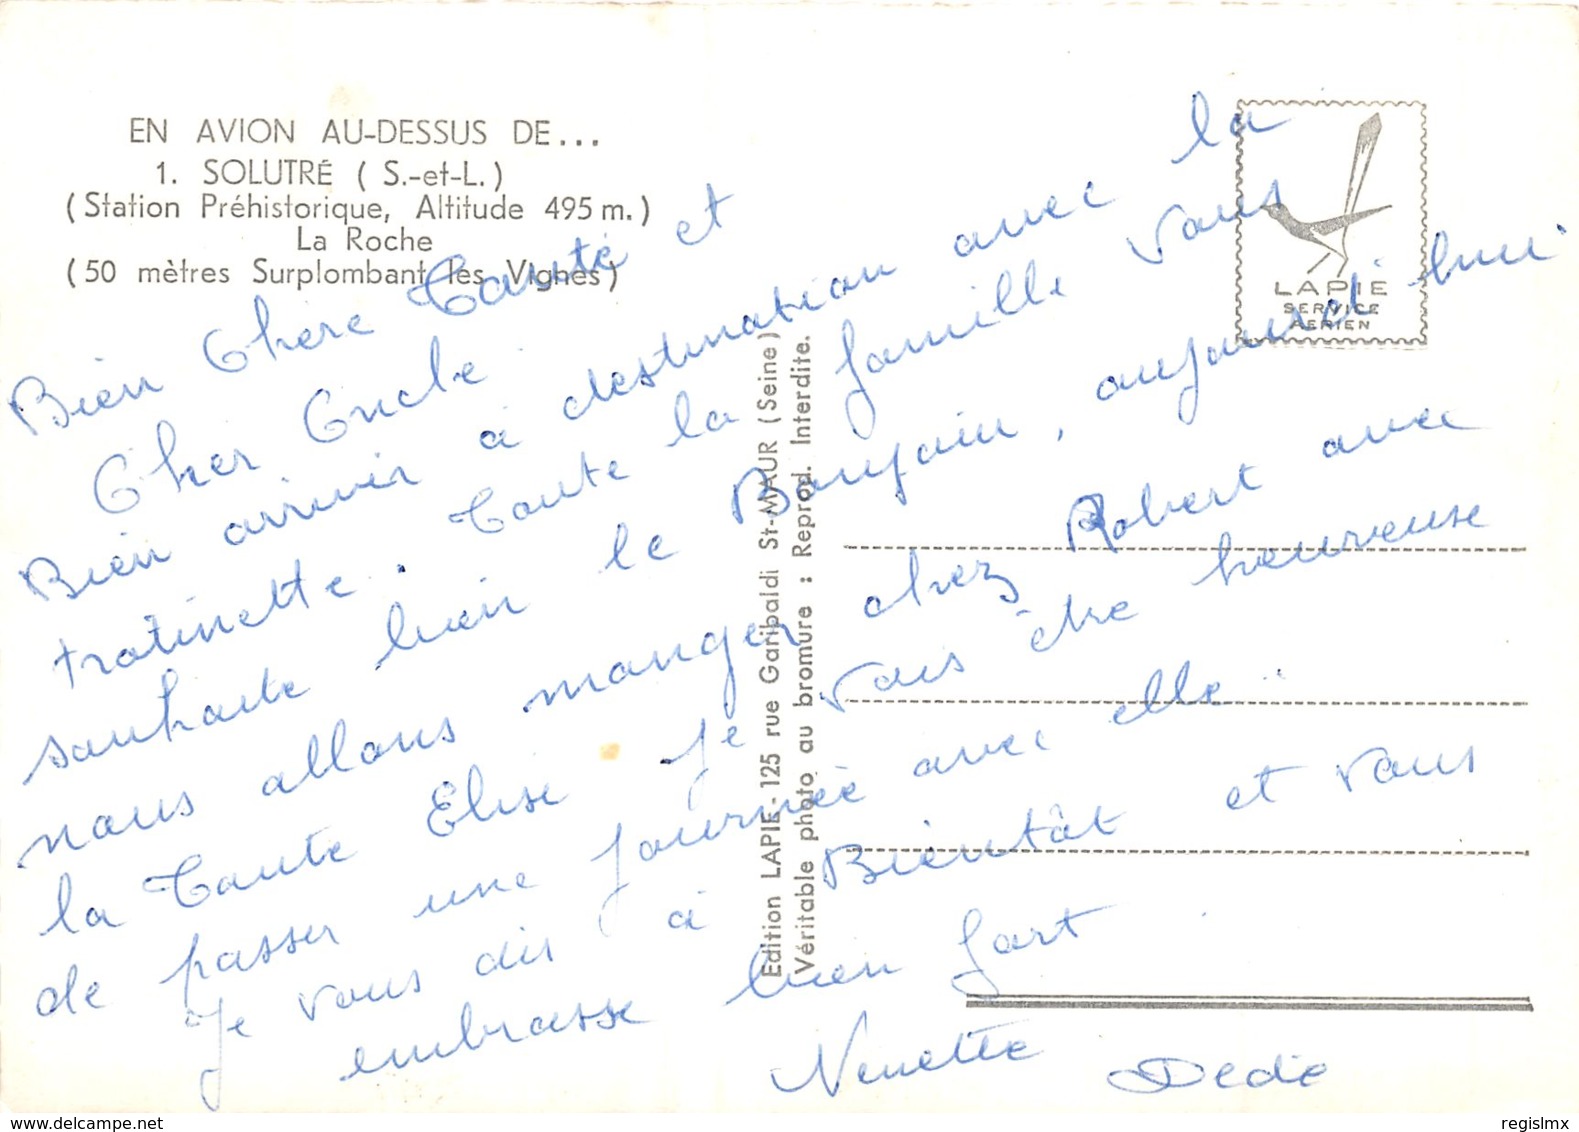 EN AVION AU-DESSUS DE...
1. SOLUTRÉ ( S.-et-L.)
(Station Préhistorique, Altitude 495 m.)
La Roche
(50 mètres Surplombant les Vignes)
LAPIE
SERVICE
AERIEN
Edition LAPIE - 125 rue Garibaldi St-MAUR (Seine)
Véritable photo au bromure : Reprod. Interdite.
Bien Chère Tante et
Cher Oncle
Bien arriver à destination avec la
tratinette. Toute la famille vous
souhaite bien le Bonjour, aujourd'hui
nous allons manger chez Robert avec
la Tante Elise je vais être heureuse
de passer une journée avec elle..
Je vous dis à Bientôt et vous
embrasse bien fort
Nenette Dede
regislmx